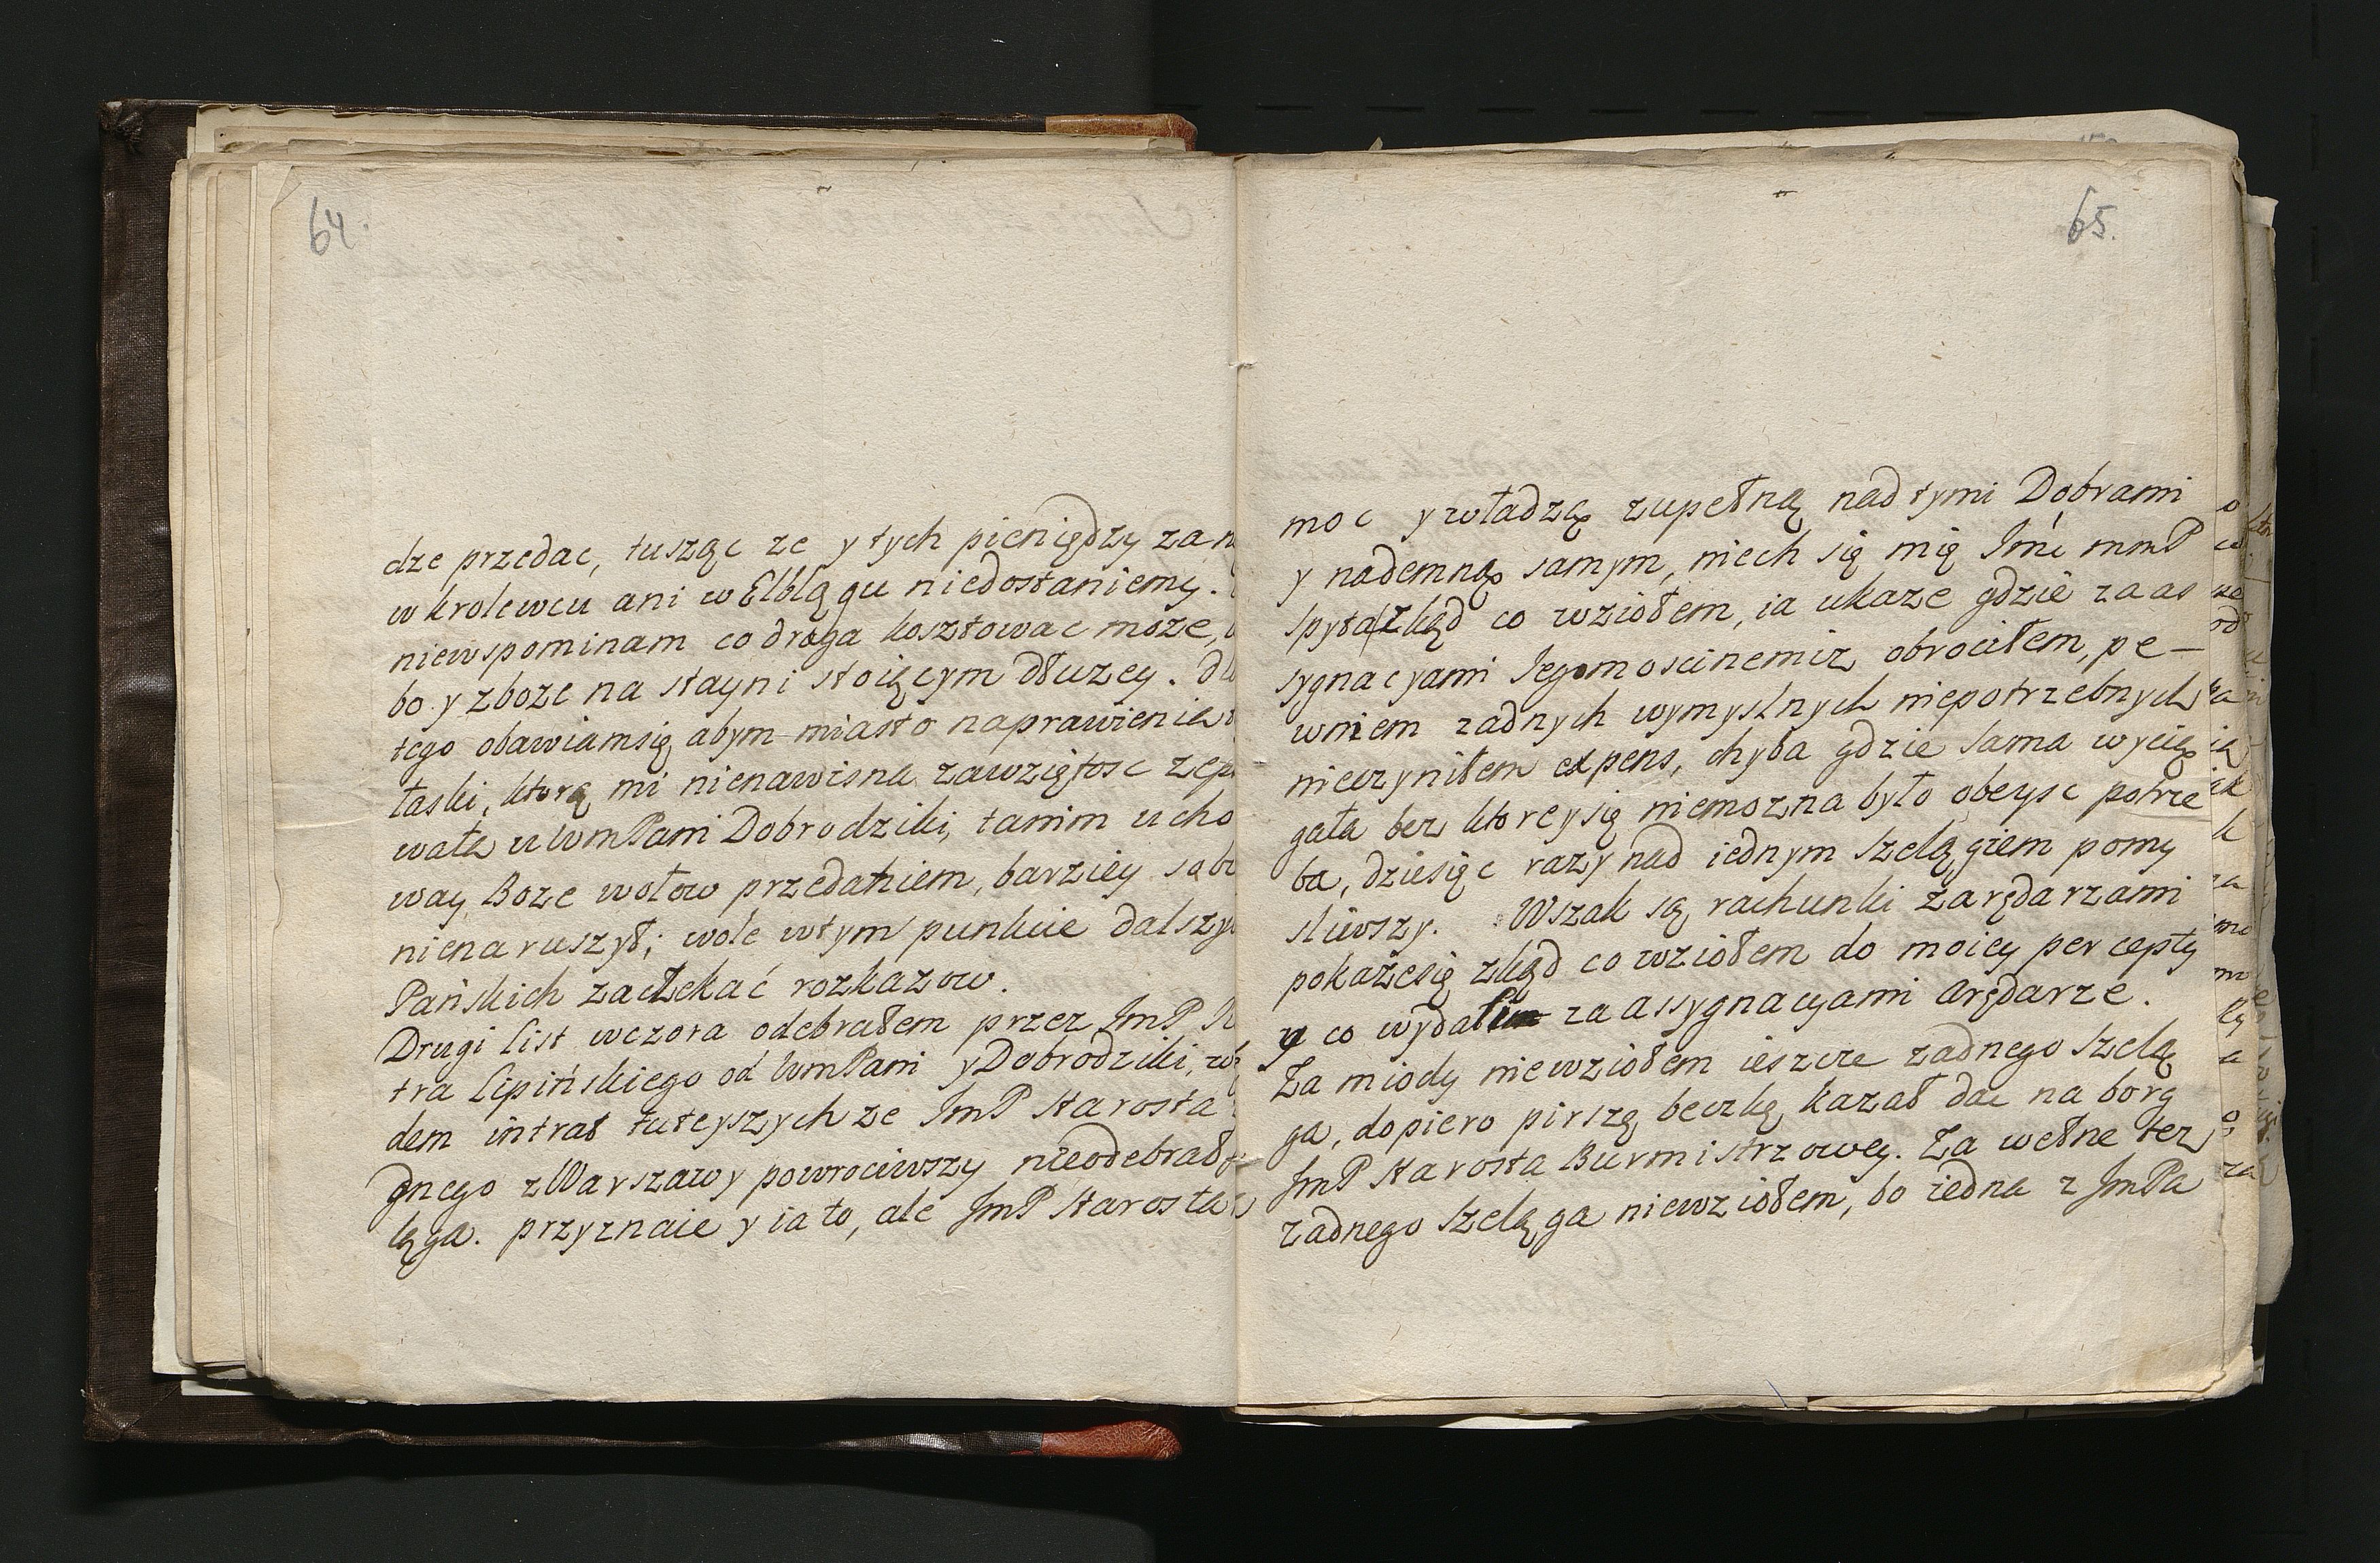 64.
dze przedac, tusząc ze y tych pieniędzy za
w krolewcu ani w Elblągu niedostaniemy.
niewspominam co droga kosztowac moze,
bo y zboze na stayni stoiącym dłuzey.
tego obawiamsię abym miasto naprawienia
łaski, ktorą mi nienawisna zawziętosc
wała u WmPani Dobrodziki, tanim ucho
way Boze wołow przedaniem, barziey sobi
nienaruszył; wole wtym punkcie
Pańskich zaczekać rozkazow.
Drugi list wczora odebrałem przez JmP
tra Lipińskiego od WmPani y Dobrodziki,
dem intrat tuteyszych ze JmP Starosta
gnego z Warszawy powrociwszy nieodebrał
ląga. przyznaie y ia to, ale JmP Starosta
65.
moc y władzą zupełną nad tymi Dobrami
y nademną samym, niech się mię Jmć mmP
spyta zkąd co wziołem, ia ukaze gdzie za as
sygnacyami Jegomoscinemiz obrociłem, pe-
wniem zadnych wymyslnych niepotrzebnych
nieczyniłem expens, chyba gdzie sama wycią
gała bez ktorey się niemozna było obeysc potrze
ba, dziesięc razy nad iednym szelągiem pomy
sliwszy. Wszak są rachunki zarędarzami
pokażesię zkąd co wziołem do moiey percepty
y co wydał za assygnacyami Arędarze.
Za miody niewziołem ieszcze zadnego szelą
ga, dopiero pirszą beczką kazał dac na borg
JmP Starosta Burmistrzowey. Za wełne tez
zadnego szeląga niewziołem, bo iedna z JmPa